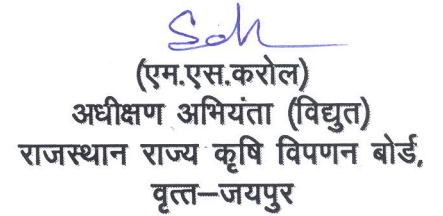 Sdh
(एम.एस.करोल)
अधीक्षण अभियंता (विद्युत)
राजस्थान राज्य कृषि विपणन बोर्ड,
वृत्त–जयपुर